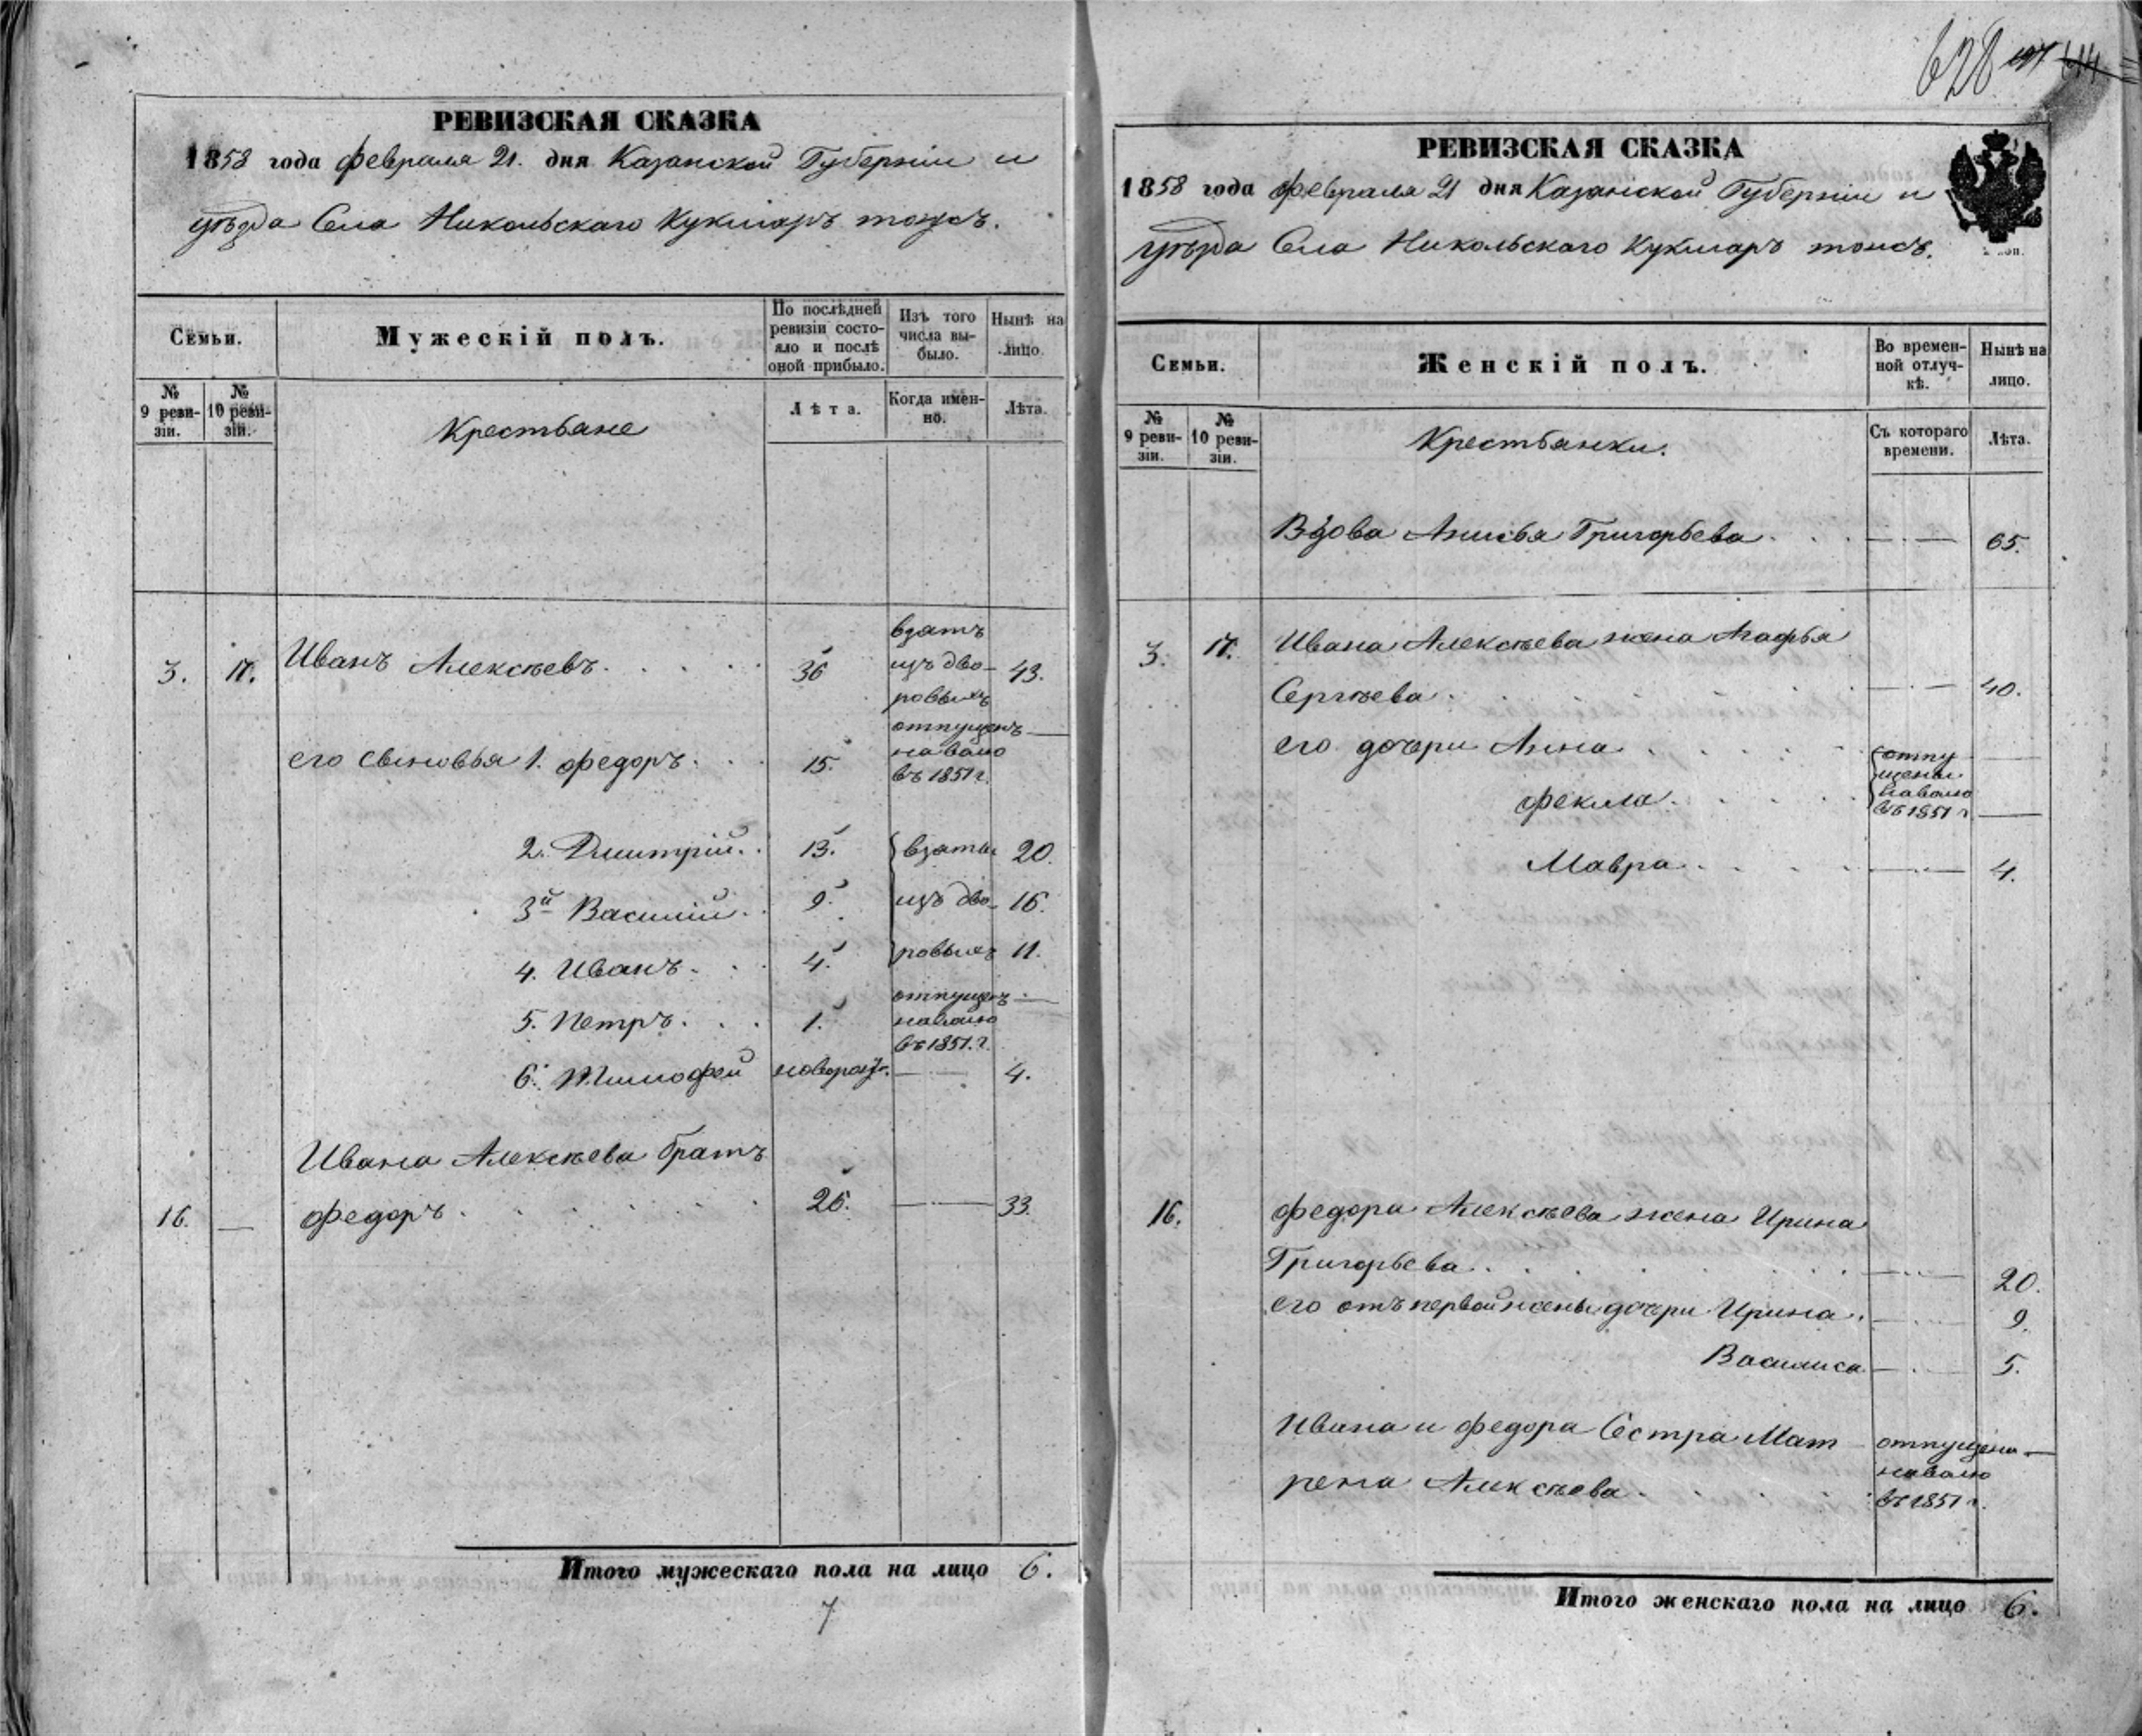 628
РЕВИЗСКАЯ СКАЗКА
1858 года февраля 21. дня Казанской Губерніи и
уѣзда Села Никольскаго Кукмаръ тожъ.
Семьи.
Мужескій полъ.
По послѣдней ревизіи состояло и послѣ оной прибыло.
Изъ того числа выбыло.
Нынѣ на лицо.
№ 9 ревизіи.
№ 10 ревизіи.
Крестьяне
Лѣта.
Когда именно.
Лѣта.
3. 17. Иванъ Алексѣевъ. 36 взятъ изъ дворовыхъ 43.
его сыновья 1. Федоръ. 15. отпущенъ на волю въ 1851 г. —
2. Дмитрій. 13. взяты 20.
3й Василій. 9. изъ дво- 16.
4. Иванъ. 4. ровыхъ 11.
5. Петръ. 1. отпущенъ на волю въ 1851. г. —
6. Тимофей новорож. — 4.
Ивана Алексѣева братъ
16. — Федоръ. 26. — 33.
Итого мужескаго пола на лицо 6.
7
РЕВИЗСКАЯ СКАЗКА
1858 года февраля 21 дня Казанской Губерніи и
уѣзда Села Никольскаго Кукмаръ тожъ.
Семьи.
Женскій полъ.
Во временной отлучкѣ.
Нынѣ на лицо.
№ 9 ревизіи.
№ 10 ревизіи.
Крестьянки.
Съ котораго времени.
Лѣта.
Вдова Анисья Григорьева. — 65.
3. 17. Ивана Алексѣева жена Агафья
Сергѣева. — 40.
его дочери Анна. отпу- —
Фекла. щены на волю въ 1851 г —
Мавра. — 4.
16. Федора Алексѣева жена Ирина
Григорьева. — 20.
его отъ первой жены дочери Ирина. — 9.
Василиса — 5.
Ивана и Федора Сестра Мат-
рена Алексѣева. отпущена на волю въ 1851 г. —
Итого женскаго пола на лицо 6.